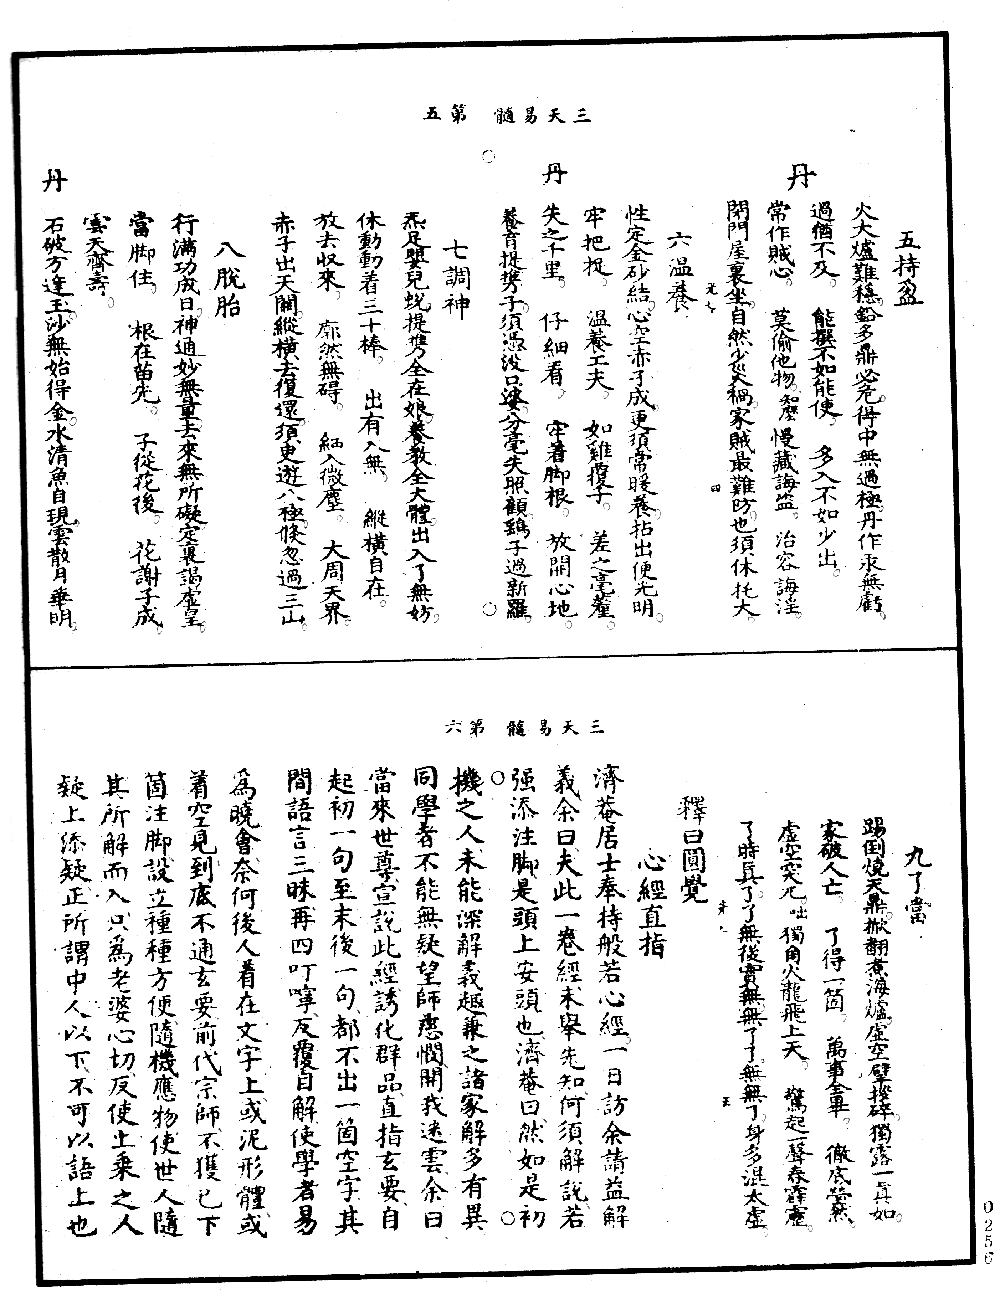 三天易髓 第五
五持盈
火大爐難穩。鉛多鼎必危。得中無過極。丹作永無虧。
丹
過猶不及。 能撰不如能使。 多入不如少出。
常作賊心。 莫偷他物。 慢藏誨盜。 治容誨淫。
閉門屋裏坐。自然少災禍。家賊最難防。也須休托大。
六溫養
性定金砂結。心空赤子成。更須常暖養。拈出便光明。
牢把捉。 溫養工夫。 如雞覆子。 差之毫釐。
丹
失之千里。 仔細看。 牢著脚根。 放開心地。
養育提攜子。須憑波口婆。分毫失照顧。鷂子過新羅。
七調神
炁足嬰兒蛻。提攜全在娘。養教全大體。出入了無妨。
休動動着三十棒。 出有入無。 縱橫自在。
放去收來。 廓然無碍。 細入微塵。 大周天界。
赤子出天關。縱橫去復還。須更遊八極。倏忽過三山。
八脫胎
行滿功成日。神通妙無量。去來無所礙。定裏謁虛皇。
當脚住。 根在苗先。 子從花後。 花謝子成。
雲天齊壽。
丹
石破方逢玉。沙無始得金。水清魚自現。雲散月華明。
三天易髓 第六
九了當
踢倒燒天鼎。掀翻煮海爐。虛空擘撥碎。獨露一真如。
家破人亡。 了得一箇。 萬事全畢。 徹底瑩然。
虛空突兀。咄 獨角火龍飛上天。 驚起一聲春霹靂。
了時真了了。無後實無無。了了無無了。身多混太虛。
釋曰圓覺
心經直指
濟菴居士奉持般若心經。一日訪余。請益解
義。余曰。夫此一卷經。未舉先知。何須解說。若
强添注脚。是頭上安頭也。濟菴曰。然。如是初
機之人。未能深解義趣。兼之諸家解多有異
同。學者不能無疑。望師慈憫。開我迷雲。余曰
當來世尊宣說此經。誘化群品。直指玄要。自
起初一句至末後一句。都不出一箇空字。其
間語言三昧。再四叮嚀。反覆自解。使學者易
為曉會。奈何後人着在文字上。或泥形體。或
着空見。到底不通玄要。前代宗師不獲已。下
箇注脚。設立種種方便。隨機應物。使世人隨
其所解而入。只為老婆心切。反使上乘之人
疑上添疑。正所謂中人以下。不可以語上也
0256